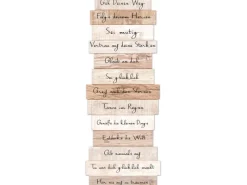 Geh Deinen Weg
Folg' deinem Herzen
Sei mutig
Vertrau auf deine Stärken
Glaub an dich
Sei glücklich
Greif nach den Sternen
Tanze im Regen
Genieße die kleinen Dinge
Entdecke die Welt
Gib niemals auf
Tu was dich glücklich macht